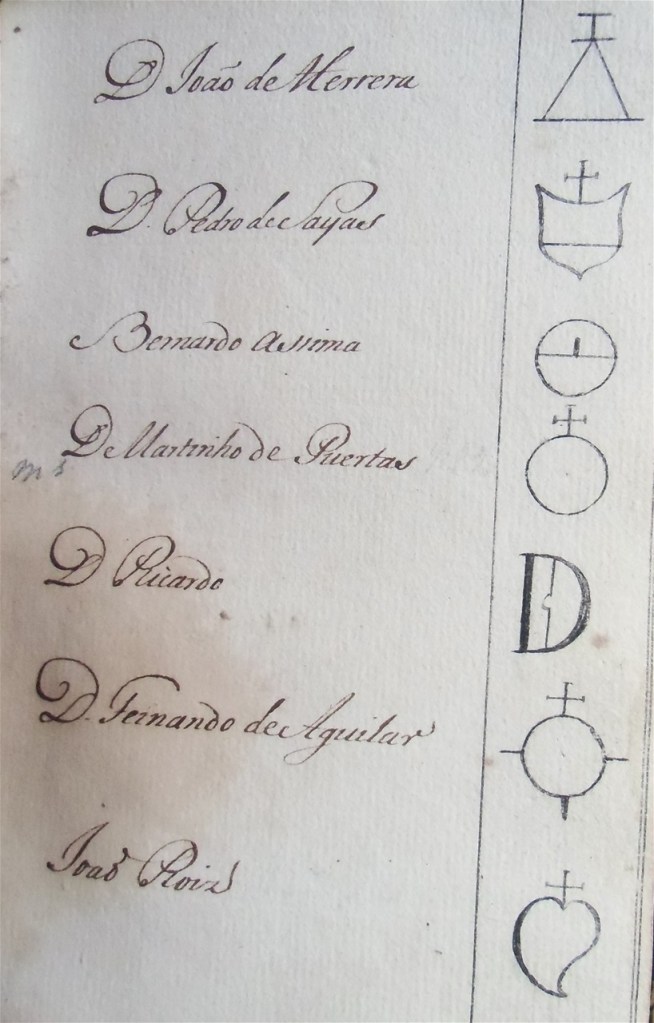 D João de Herrera
D. Pedro de Sayas
Bernardo Assima
D. Martinho de Puertas
m s
D Ricardo
D. Fernando de Aguilar
João Roiz
D